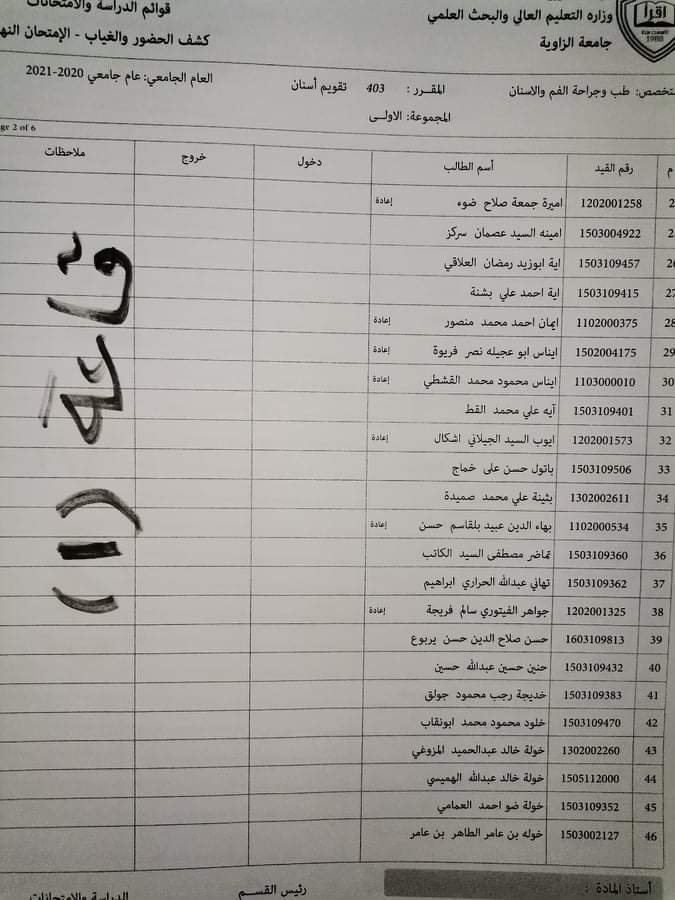 قوائم الدراسة والامتحانات
وزاره التعليم العالي والبحث العلمي
كشف الحضور والغياب - الإمتحان
جامعة الزاوية
اقرأ
1988
تخصص: طب وجراحة الفم والاسنان
المقـــرر : 403 تقويم أسنان
العام الجامعي: عام جامعي 2020-2021
المجموعة: الاولى
Page 2 of 6
م رقم القيد أسم الطالب دخول خروج ملاحظات
1202001258 اميرة جمعة صلاح ضوء إعادة
1503004922 امينه السيد عصمان سركز
26 1503109457 اية ابوزيد رمضان العلاقي
27 1503109415 اية احمد علي بشنة
28 1102000375 ايمان احمد محمد منصور إعادة
29 1502004175 ايناس ابو عجيله نصر فريوة إعادة
30 1103000010 ايناس محمود محمد القشطي إعادة
31 1503109401 آيه علي محمد القط
32 1202001573 ايوب السيد الجيلاني اشكال إعادة
33 1503109506 باتول حسن على خماج
34 1302002611 بثينة علي محمد صميدة
35 1102000534 بهاء الدين عبيد بلقاسم حسن إعادة
36 1503109360 تماضر مصطفى السيد الكاتب
37 1503109362 تهاني عبدالله الحراري ابراهيم
38 1202001325 جواهر الفيتوري سالم فريجة إعادة
39 1603109813 حسن صلاح الدين حسن يربوع
40 1503109432 حنين حسين عبدالله حسين
41 1503109383 خديجة رجب محمود جولق
42 1503109470 خلود محمود محمد ابونقاب
43 1302002260 خولة خالد عبدالحميد المزوغي
44 1505112000 خولة خالد عبدالله الهميسي
45 1503109352 خولة ضو احمد العمامي
46 1503002127 خوله بن عامر الطاهر بن عامر
(1)
أستاذ المادة :
رئيس القســم
الدراسة والامتحانات